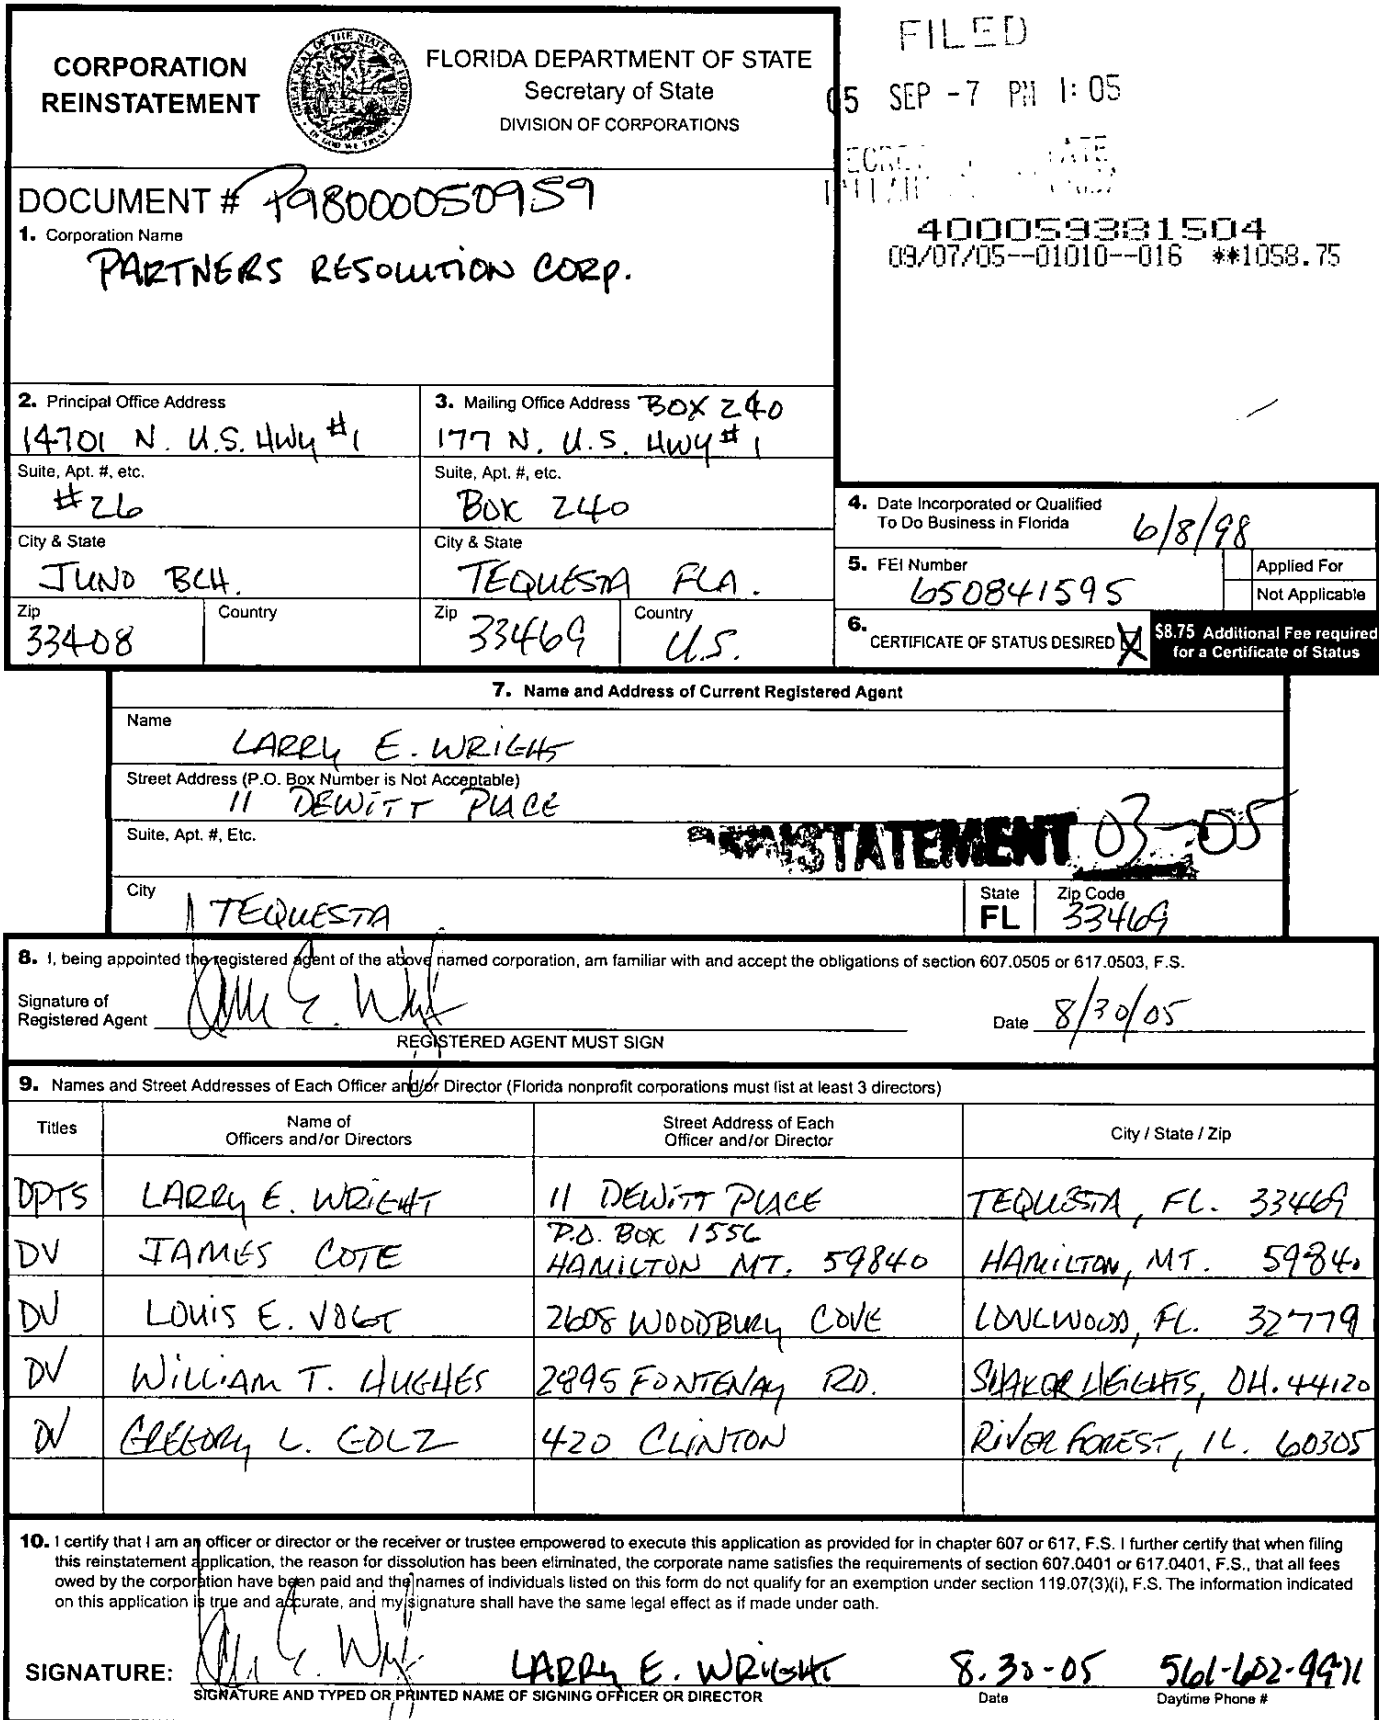 CORPORATION
REINSTATEMENT
FLORIDA DEPARTMENT OF STATE
Secretary of State
DIVISION OF CORPORATIONS
FILED
05 SEP -7 PM 1:05
DOCUMENT # P98000050959
400059381504
09/07/05--01010--016 **1058.75
1. Corporation Name
PARTNERS RESOLUTION CORP.
2. Principal Office Address
14701 N. U.S. HWY #1
3. Mailing Office Address BOX 240
177 N. U.S. HWY # 1
Suite, Apt. #, etc.
#26
Suite, Apt. #, etc.
BOX 240
City & State
JUNO BCH.
City & State
TEQUESTA FLA.
Zip
33408
Country
Zip
33469
Country
U.S.
4. Date Incorporated or Qualified
To Do Business in Florida
6/8/98
5. FEI Number
650841595
Applied For
Not Applicable
6. CERTIFICATE OF STATUS DESIRED X
$8.75 Additional Fee required
for a Certificate of Status
7. Name and Address of Current Registered Agent
Name
LARRY E. WRIGHT
Street Address (P.O. Box Number is Not Acceptable)
11 DEWITT PLACE
Suite, Apt. #, Etc.
REINSTATEMENT 03-05
City
TEQUESTA
State
FL
Zip Code
33469
8. I, being appointed the registered agent of the above named corporation, am familiar with and accept the obligations of section 607.0505 or 617.0503, F.S.
Signature of
Registered Agent
Date 8/30/05
REGISTERED AGENT MUST SIGN
9. Names and Street Addresses of Each Officer and/or Director (Florida nonprofit corporations must list at least 3 directors)
Titles
Name of
Officers and/or Directors
Street Address of Each
Officer and/or Director
City / State / Zip
DPTS LARRY E. WRIGHT 11 DEWITT PLACE TEQUESTA, FL. 33469
DV JAMES COTE P.O. BOX 1556
HAMILTON MT. 59840 HAMILTON, MT. 59840
DV LOUIS E. VOGT 2608 WOODBURY COVE LONGWOOD, FL. 32779
DV WILLIAM T. HUGHES 2895 FONTENAY RD. SHAKER HEIGHTS, OH. 44120
DV GREGORY L. GOLZ 420 CLINTON RIVER FOREST, IL. 60305
10. I certify that I am an officer or director or the receiver or trustee empowered to execute this application as provided for in chapter 607 or 617, F.S. I further certify that when filing
this reinstatement application, the reason for dissolution has been eliminated, the corporate name satisfies the requirements of section 607.0401 or 617.0401, F.S., that all fees
owed by the corporation have been paid and the names of individuals listed on this form do not qualify for an exemption under section 119.07(3)(i), F.S. The information indicated
on this application is true and accurate, and my signature shall have the same legal effect as if made under oath.
SIGNATURE:
LARRY E. WRIGHT 8.30-05
SIGNATURE AND TYPED OR PRINTED NAME OF SIGNING OFFICER OR DIRECTOR
Date
Daytime Phone #